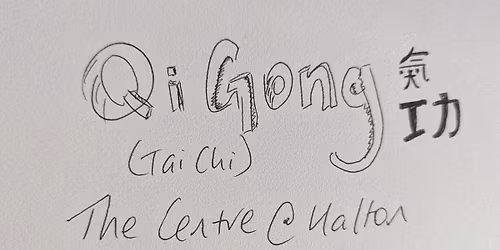 Qi Gong 氣功
(Tai Chi)
The Centre @ Halton